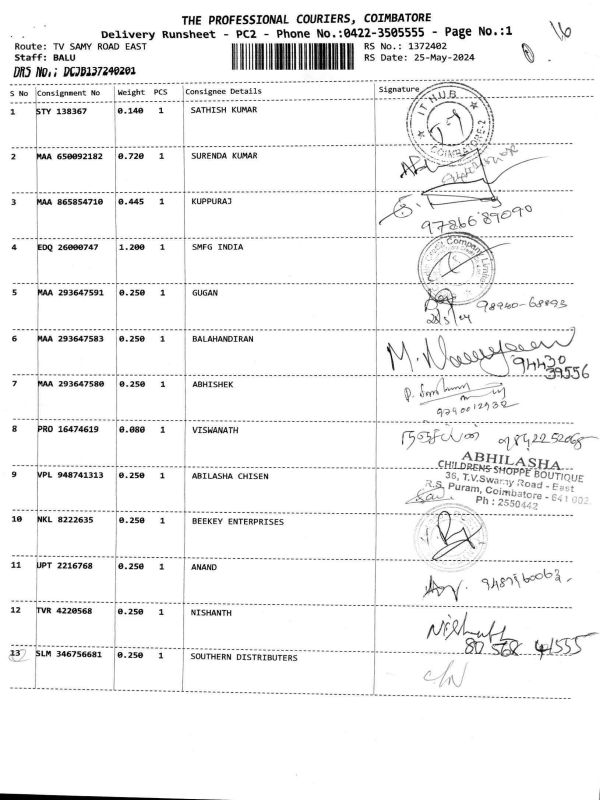 THE PROFESSIONAL COURIERS, COIMBATORE
16
Delivery Runsheet - PC2 - Phone No.:0422-3505555 - Page No.:1
Route: TV SAMY ROAD EAST
RS No.: 1372402
Staff: BALU
RS Date: 25-May-2024
DRS No.: DCJB137240201
S No Consignment No Weight PCS Consignee Details Signature
1 STY 138367 0.140 1 SATHISH KUMAR
IT HUB
COIMBATORE-2
2 MAA 650092182 0.720 1 SURENDA KUMAR
3 MAA 865854710 0.445 1 KUPPURAJ
9786689090
4 EDQ 26000747 1.200 1 SMFG INDIA
5 MAA 293647591 0.250 1 GUGAN
6 MAA 293647583 0.250 1 BALAHANDIRAN
94430
39556
7 MAA 293647580 0.250 1 ABHISHEK
8 PRO 16474619 0.080 1 VISWANATH
9 VPL 948741313 0.250 1 ABILASHA CHISEN
ABHILASHA
CHILDRENS SHOPPE BOUTIQUE
36, T.V.Swamy Road - East
R.S. Puram, Coimbatore - 641 002.
Ph : 2550442
10 NKL 8222635 0.250 1 BEEKEY ENTERPRISES
11 UPT 2216768 0.250 1 ANAND
12 TVR 4220568 0.250 1 NISHANTH
Nishanth
80 568 41555
13 SLM 346756681 0.250 1 SOUTHERN DISTRIBUTERS